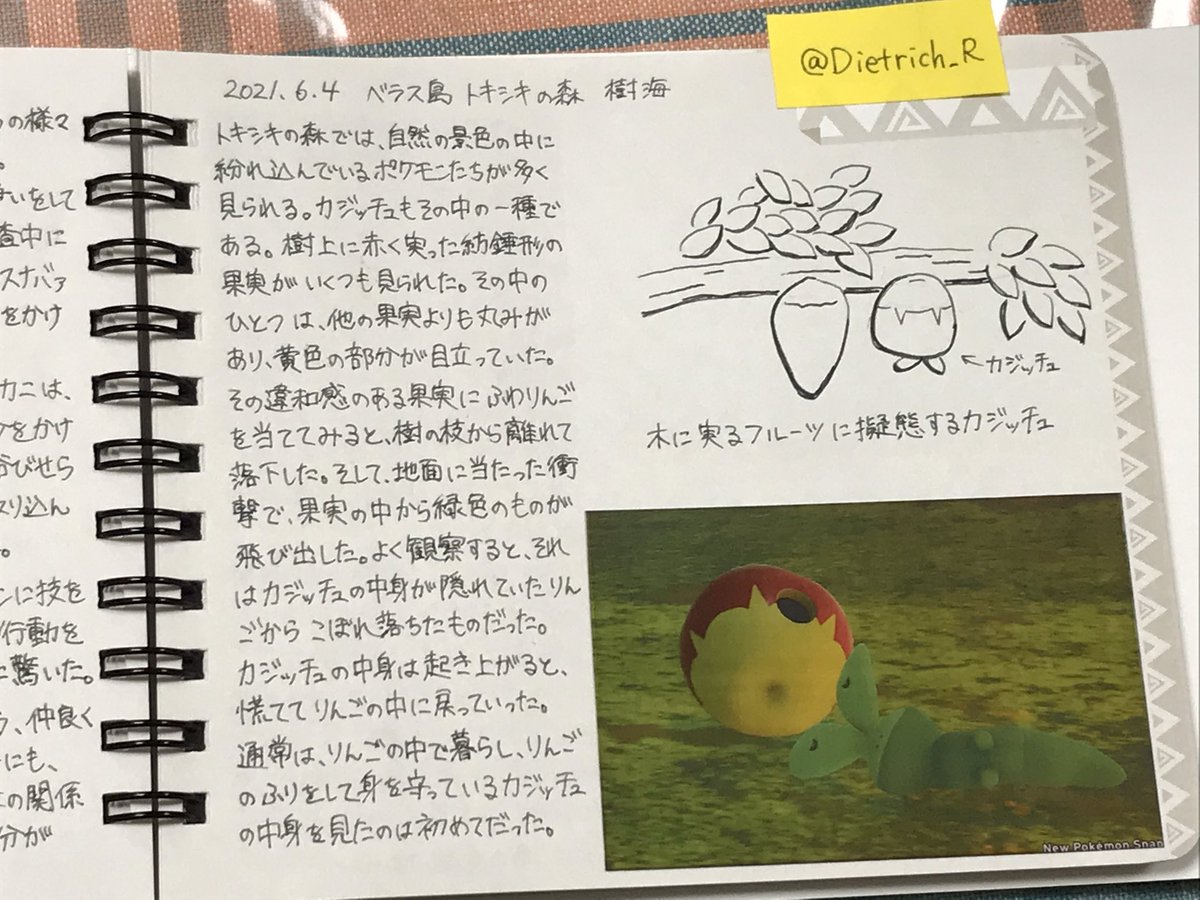 @Dietrich_R
の様々
。
いをして
査中に
スナバァ
をかけ
カニは、
クをかけ
浴びせら
スり込ん
。
ンに技を
行動を
に驚いた。
う、仲良く
にも、
この関係
分が
2021.6.4 ベラス島 トキシキの森 樹海
トキシキの森では、自然の景色の中に
紛れ込んでいるポケモンたちが多く
見られる。カジッチュもその中の一種で
ある。樹上に赤く実った紡錘形の
果実がいくつも見られた。その中の
ひとつは、他の果実よりも丸みが
あり、黄色の部分が目立っていた。
その違和感のある果実にふわりんご
を当ててみると、樹の枝から離れて
落下した。そして、地面に当たった衝
撃で、果実の中から緑色のものが
飛び出した。よく観察すると、それ
はカジッチュの中身が隠れていたりん
ごからこぼれ落ちたものだった。
カジッチュの中身は起き上がると、
慌ててりんごの中に戻っていった。
通常は、りんごの中で暮らし、りんご
のふりをして身を守っているカジッチュ
の中身を見たのは初めてだった。
←カジッチュ
木に実るフルーツに擬態するカジッチュ
New Pokémon Snap